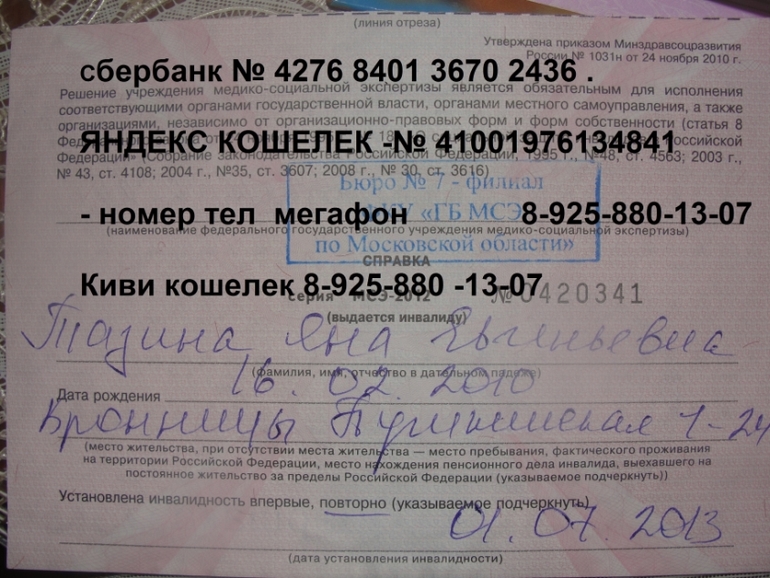 (линия отреза)
Утверждена приказом Минздравсоцразвития
России № 1031н от 24 ноября 2010 г.
сбербанк № 4276 8401 3670 2436 .
Решение учреждения медико-социальной экспертизы является обязательным для исполнения
соответствующими органами государственной власти, органами местного самоуправления, а также
организациями, независимо от организационно-правовых форм и форм собственности (статья 8
ЯНДЕКС КОШЕЛЕК -№ 41001976134841
Федерации» Собрание законодательства Российской Федерации, 1995 г., №48, ст. 4563; 2003 г.,
№ 43, ст. 4108; 2004 г., №35, ст. 3607; 2008 г., № 30, ст. 3616)
Бюро № 7 - филиал
- номер тел мегафон 8-925-880-13-07
ФКУ «ГБ МСЭ
(наименование федерального государственного учреждения медико-социальной экспертизы)
по Московской области»
СПРАВКА
Киви кошелек 8-925-880 -13-07
серия МСЭ-2012 № 0420341
(выдается инвалиду)
Тазина Яна Евгеньевна
(фамилия, имя, отчество в дательном падеже)
Дата рождения 16. 02. 2010
Бронницы Пушкинская 1-24
(место жительства, при отсутствии места жительства — место пребывания, фактического проживания
на территории Российской Федерации, место нахождения пенсионного дела инвалида, выехавшего на
постоянное жительство за пределы Российской Федерации (указываемое подчеркнуть))
Установлена инвалидность впервые, повторно (указываемое подчеркнуть)
01. 07. 2013
(дата установления инвалидности)